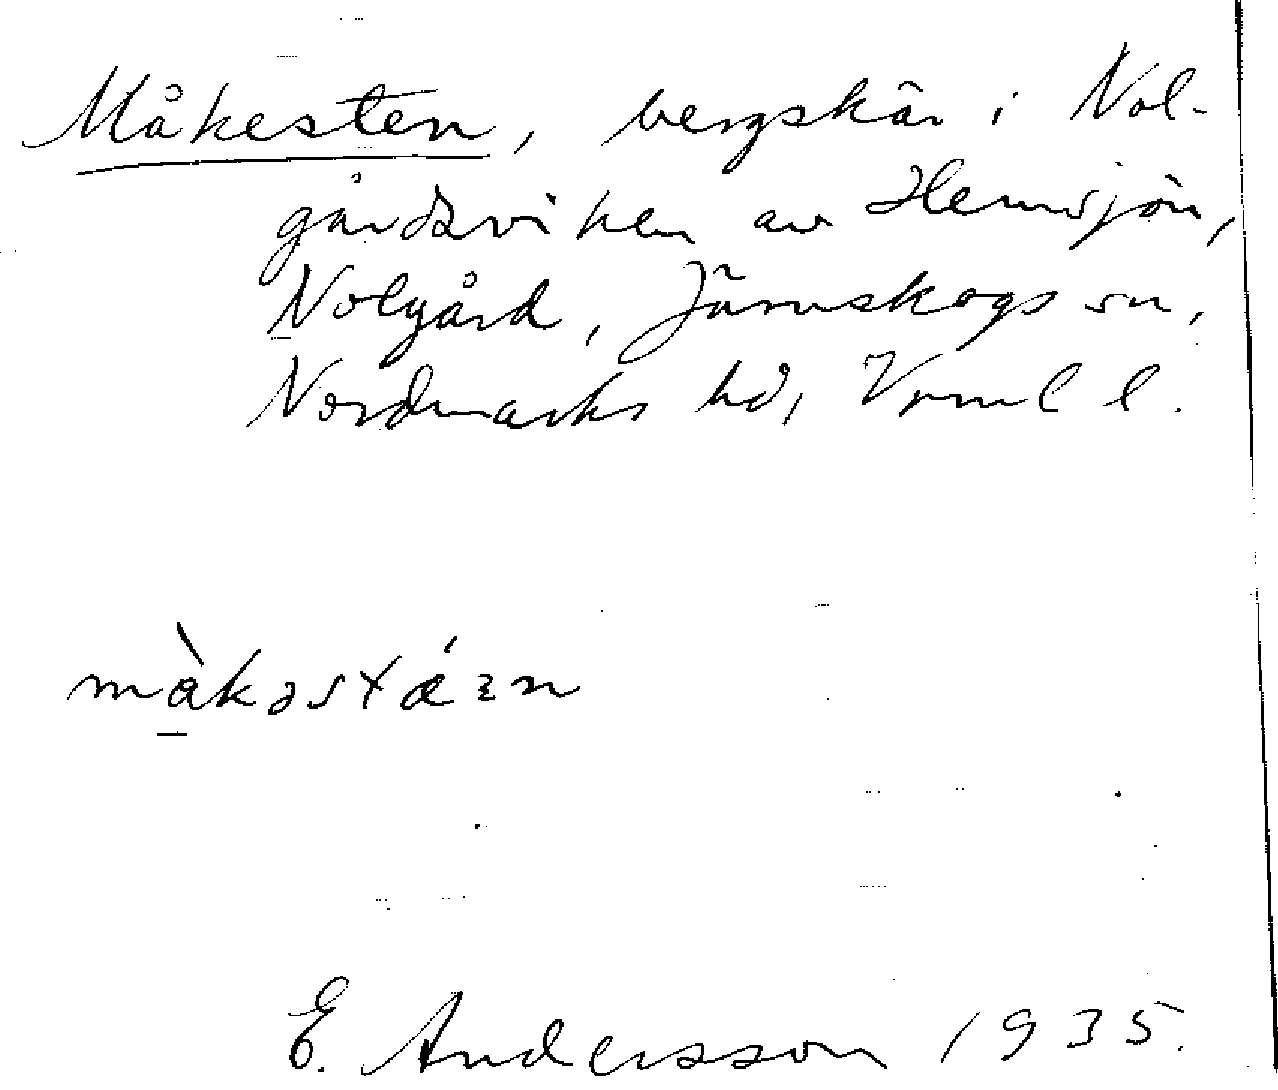 Måkesten, bergskär i Nol-
gårdsviken av Hemsjön,
Nolgård, Järnskogs sn,
Nordmarks hd, Vrml l.
måkəstǽn
E. Andersson 1935.